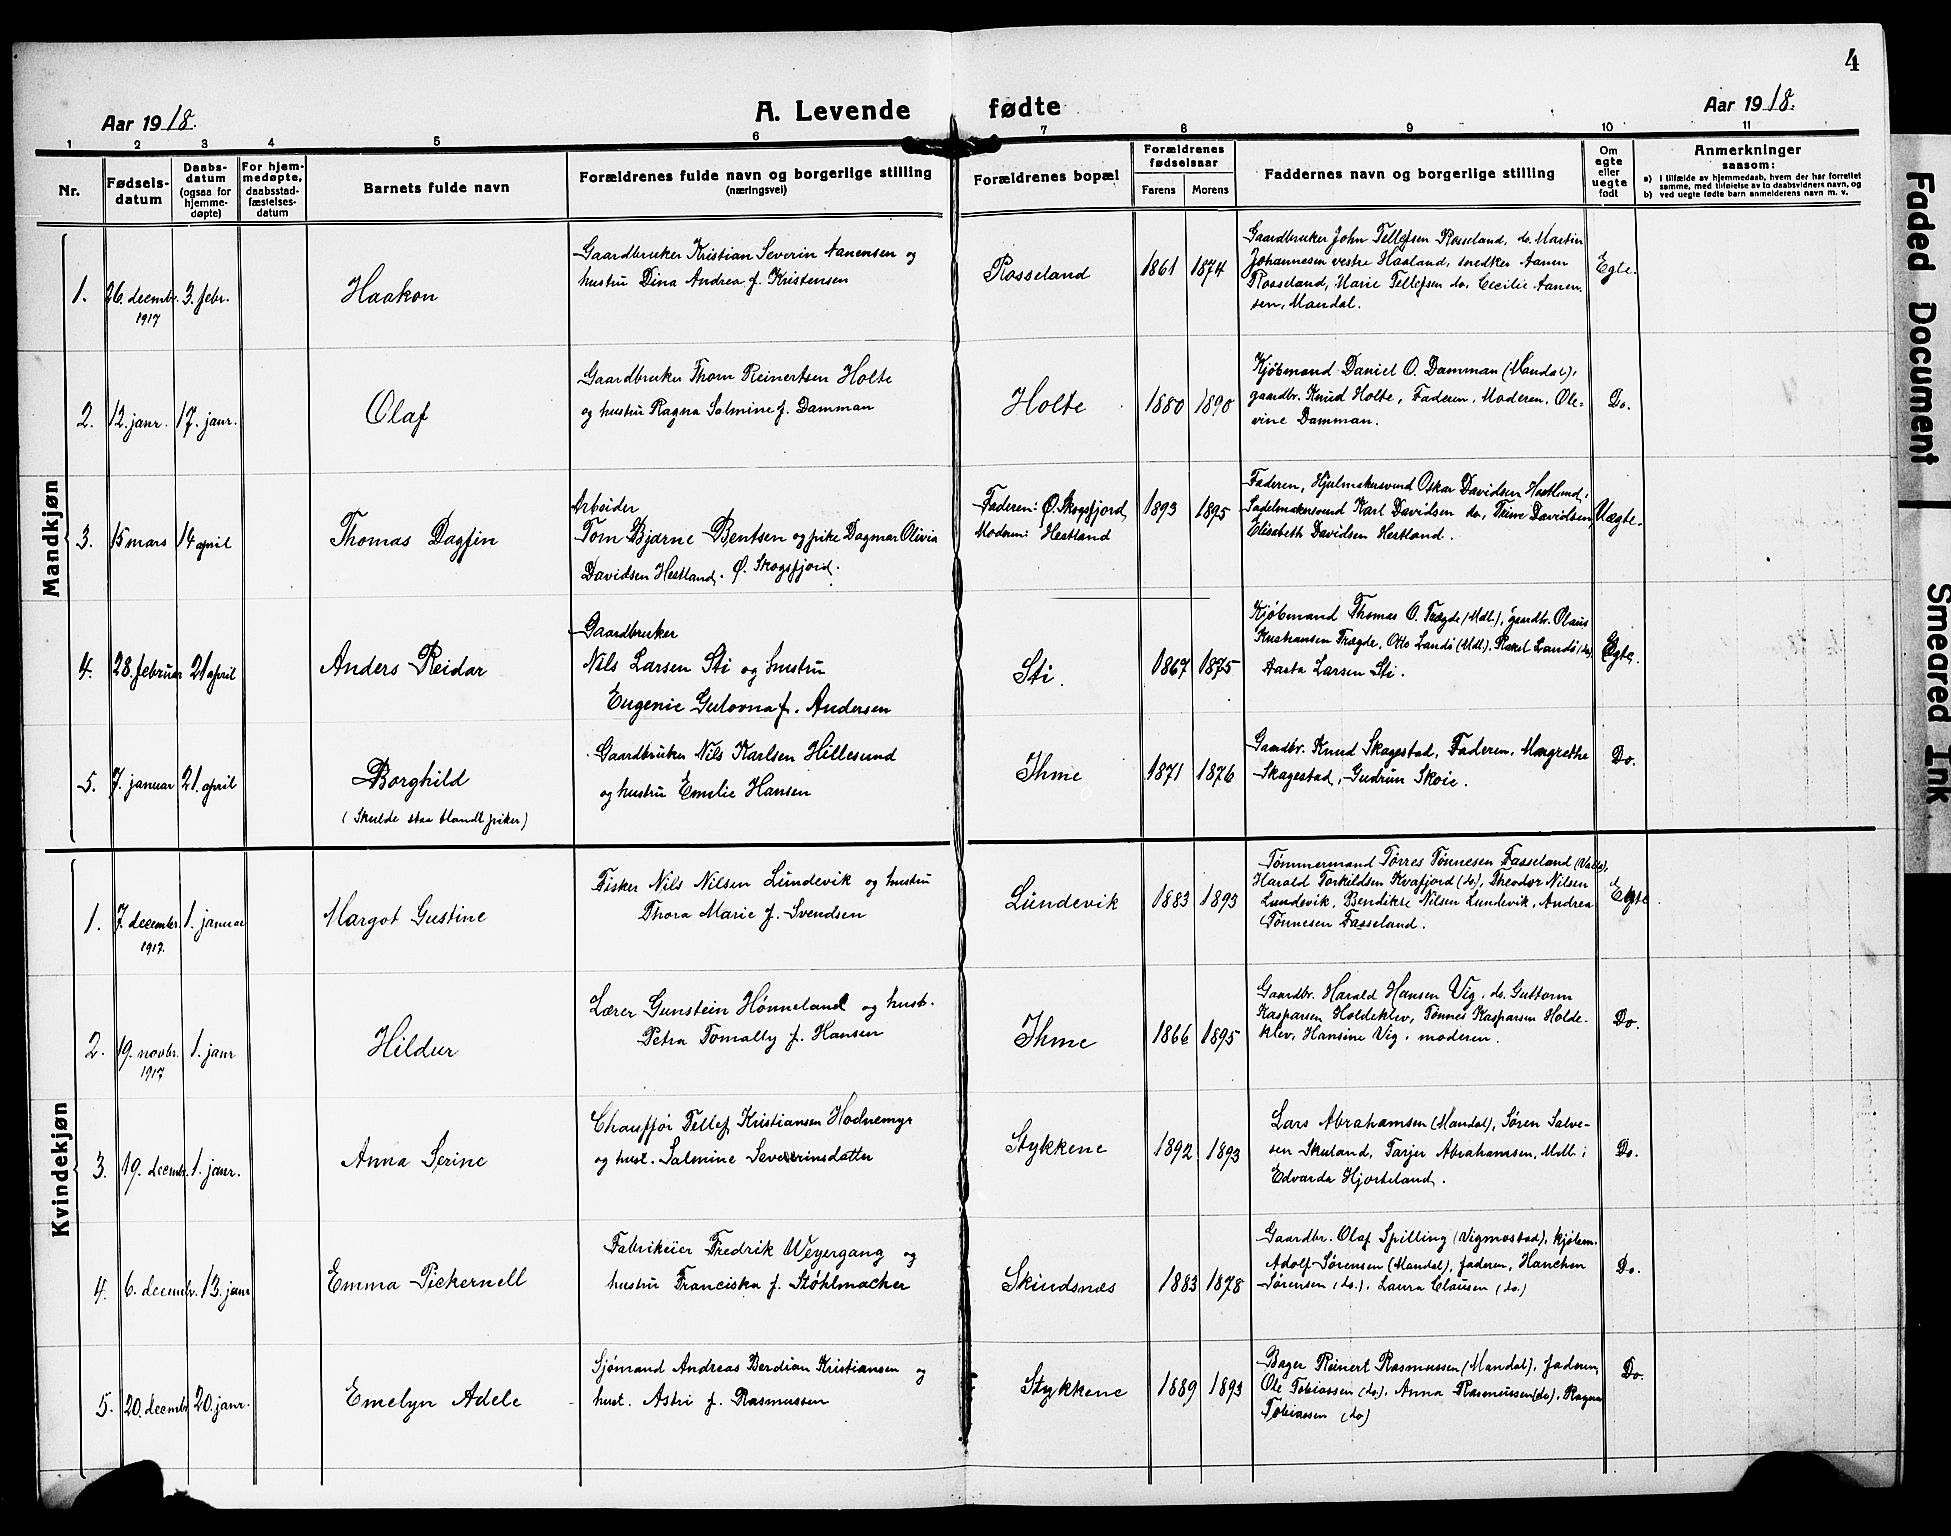 4
Aar 1918.
A. Levende fødte
Aar 1918.
1 2 3 4 5 6 7 8 9 10 11
Nr.
Fødsels-
datum
Daabs-
datum
(ogsaa for
hjemme-
døpte)
For hjem-
medøpte,
daabsstad-
fæstelses-
datum
Barnets fulde navn
Forældrenes fulde navn og borgerlige stilling
(næringsvei)
Forældrenes bopæl
Forældrenes
fødselsaar
Farens Morens
Faddernes navn og borgerlige stilling
Om
egte
eller
uegte
født
Anmerkninger
saasom:
a) I tilfælde av hjemmedaab, hvem der har forrettet
samme, med tilføielse av to daabsvidners navn, og
b) ved uegte fødte barn anmelderens navn m. v.
Mandkjøn
1.
26. decembr.
1917
3. febr.
Haakon
Gaardbruker Kristian Severin Aanensen og
hustru Dina Andrea f. Kristensen
Rosseland
1861 1874
Gaardbruker John Tellefsen Rosseland, do. Martin
Johannesen vestre Haaland, Aanen
Rosseland, Marie Tellefsen do, Cecilie Aanen
sen, Mandal.
Egte.
2.
12. janr.
17. janr.
Olaf
Gaardbruker Thom Reinertsen Holte
og hustru Ragna Salmine f. Damman
Holte
1880 1890
Kjøbmand Daniel O. Damman (Mandal),
gaardbr. Knud Holte, Faderen, Moderen, Ole-
vine Damman.
Do.
3.
15 mars
14 april
Thomas Dagfin
Arbeider
Tom Bjarne Bentsen og pike Dagmar Olivia
Davidsen Hestland. Ø. Skogsfjord.
Faderen: Ø. Skogsfjord
Moderen: Hestland
1893 1895
Faderen, Hjulmakersvend Oskar Davidsen Hestland,
Sadelmakersvend Karl Davidsen do, Trine Davidsen,
Elisabeth Davidsen Hestland.
Uegte.
4.
28. februar
21 april
Anders Reidar
Gaardbruker
Nils Larsen Sti og hustru
Eugenie Gulovna f. Andersen
Sti.
1867 1875
Kjøbmand Thomas O. Trægde (Mdl.), gaardbr. Olaus
Kristiansen Trægde, Otto Landø (Mdl.), Rakel Landø (do),
Aasta Larsen Sti.
Egte.
5.
7. januar
21. april
Borghild
(Skulde staa blandt piker)
Gaardbruker Nils Karlsen Hillesund
og hustru Emelie Hansen
Ihme
1871 1876
Gaardbr. Knud Skagestad, Faderen, Margrethe
Skagestad, Gudrun Skoie.
Do.
Kvindekjøn
1.
7. decembr.
1917.
1. januar
Margot Gustine
Fisker Nils Nilsen Lundevik og hustru
Thora Marie f. Svendsen
Lundevik
1883 1893
Tømmermand Tørres Tønnesen Fasseland (Valle),
Harald Torkildsen Kvafjord (do), Theodor Nilsen
Lundevik, Bendikte Nilsen Lundevik, Andrea
Tønnesen Fasseland.
Egte
2.
19. novbr.
1917
1. janr
Hildur
Lærer Gunstein Hønneland og hust.
Petra Tomally f. Hansen
Ihme
1866 1895
Gaardbr. Harald Hansen Vig, do. Guttorm
Kaspersen Holdeklev, Tønnes Kaspersen Holde-
klev, Hansine Vig, moderen.
Do.
3.
19. decembr.
1. janr.
Anna Serine
Chauffør Tellef Kristiansen Hodnemyr
og hust. Salmine Severinsdatter
Stykkene
1892 1893
Lars Abrahamsen (Mandal), Søren Salve-
sen Skuland, Tarjer Abrahamsen, Mdl.;
Edvarda Hjorteland.
Do.
4.
6. decembr.
13. janr
Emma Pickernell
Fabrikeier Fredrik Weyergang og
hustru Franciska f. Støhlmacher
Skindsnes
1883 1878
Gaardbr. Olaf Spilling (Vigmostad), kjøbm.
Adolf Sørensen (Mandal), faderen, Hanchen
Sørensen (do.), Laura Clausen (do.)
Do.
5.
20. decembr
20. janr.
Emelyn Adele
Sjømand Andreas Berdian Kristiansen og
hust. Astri f. Rasmussen
Stykkene
1889 1893
Bager Reinert Rasmussen (Mandal), faderen,
Ole Tobiassen (do), Anna Rasmussen (do), Ragna
Tobiassen (do)
Do.
Faded Document
Smeared Ink